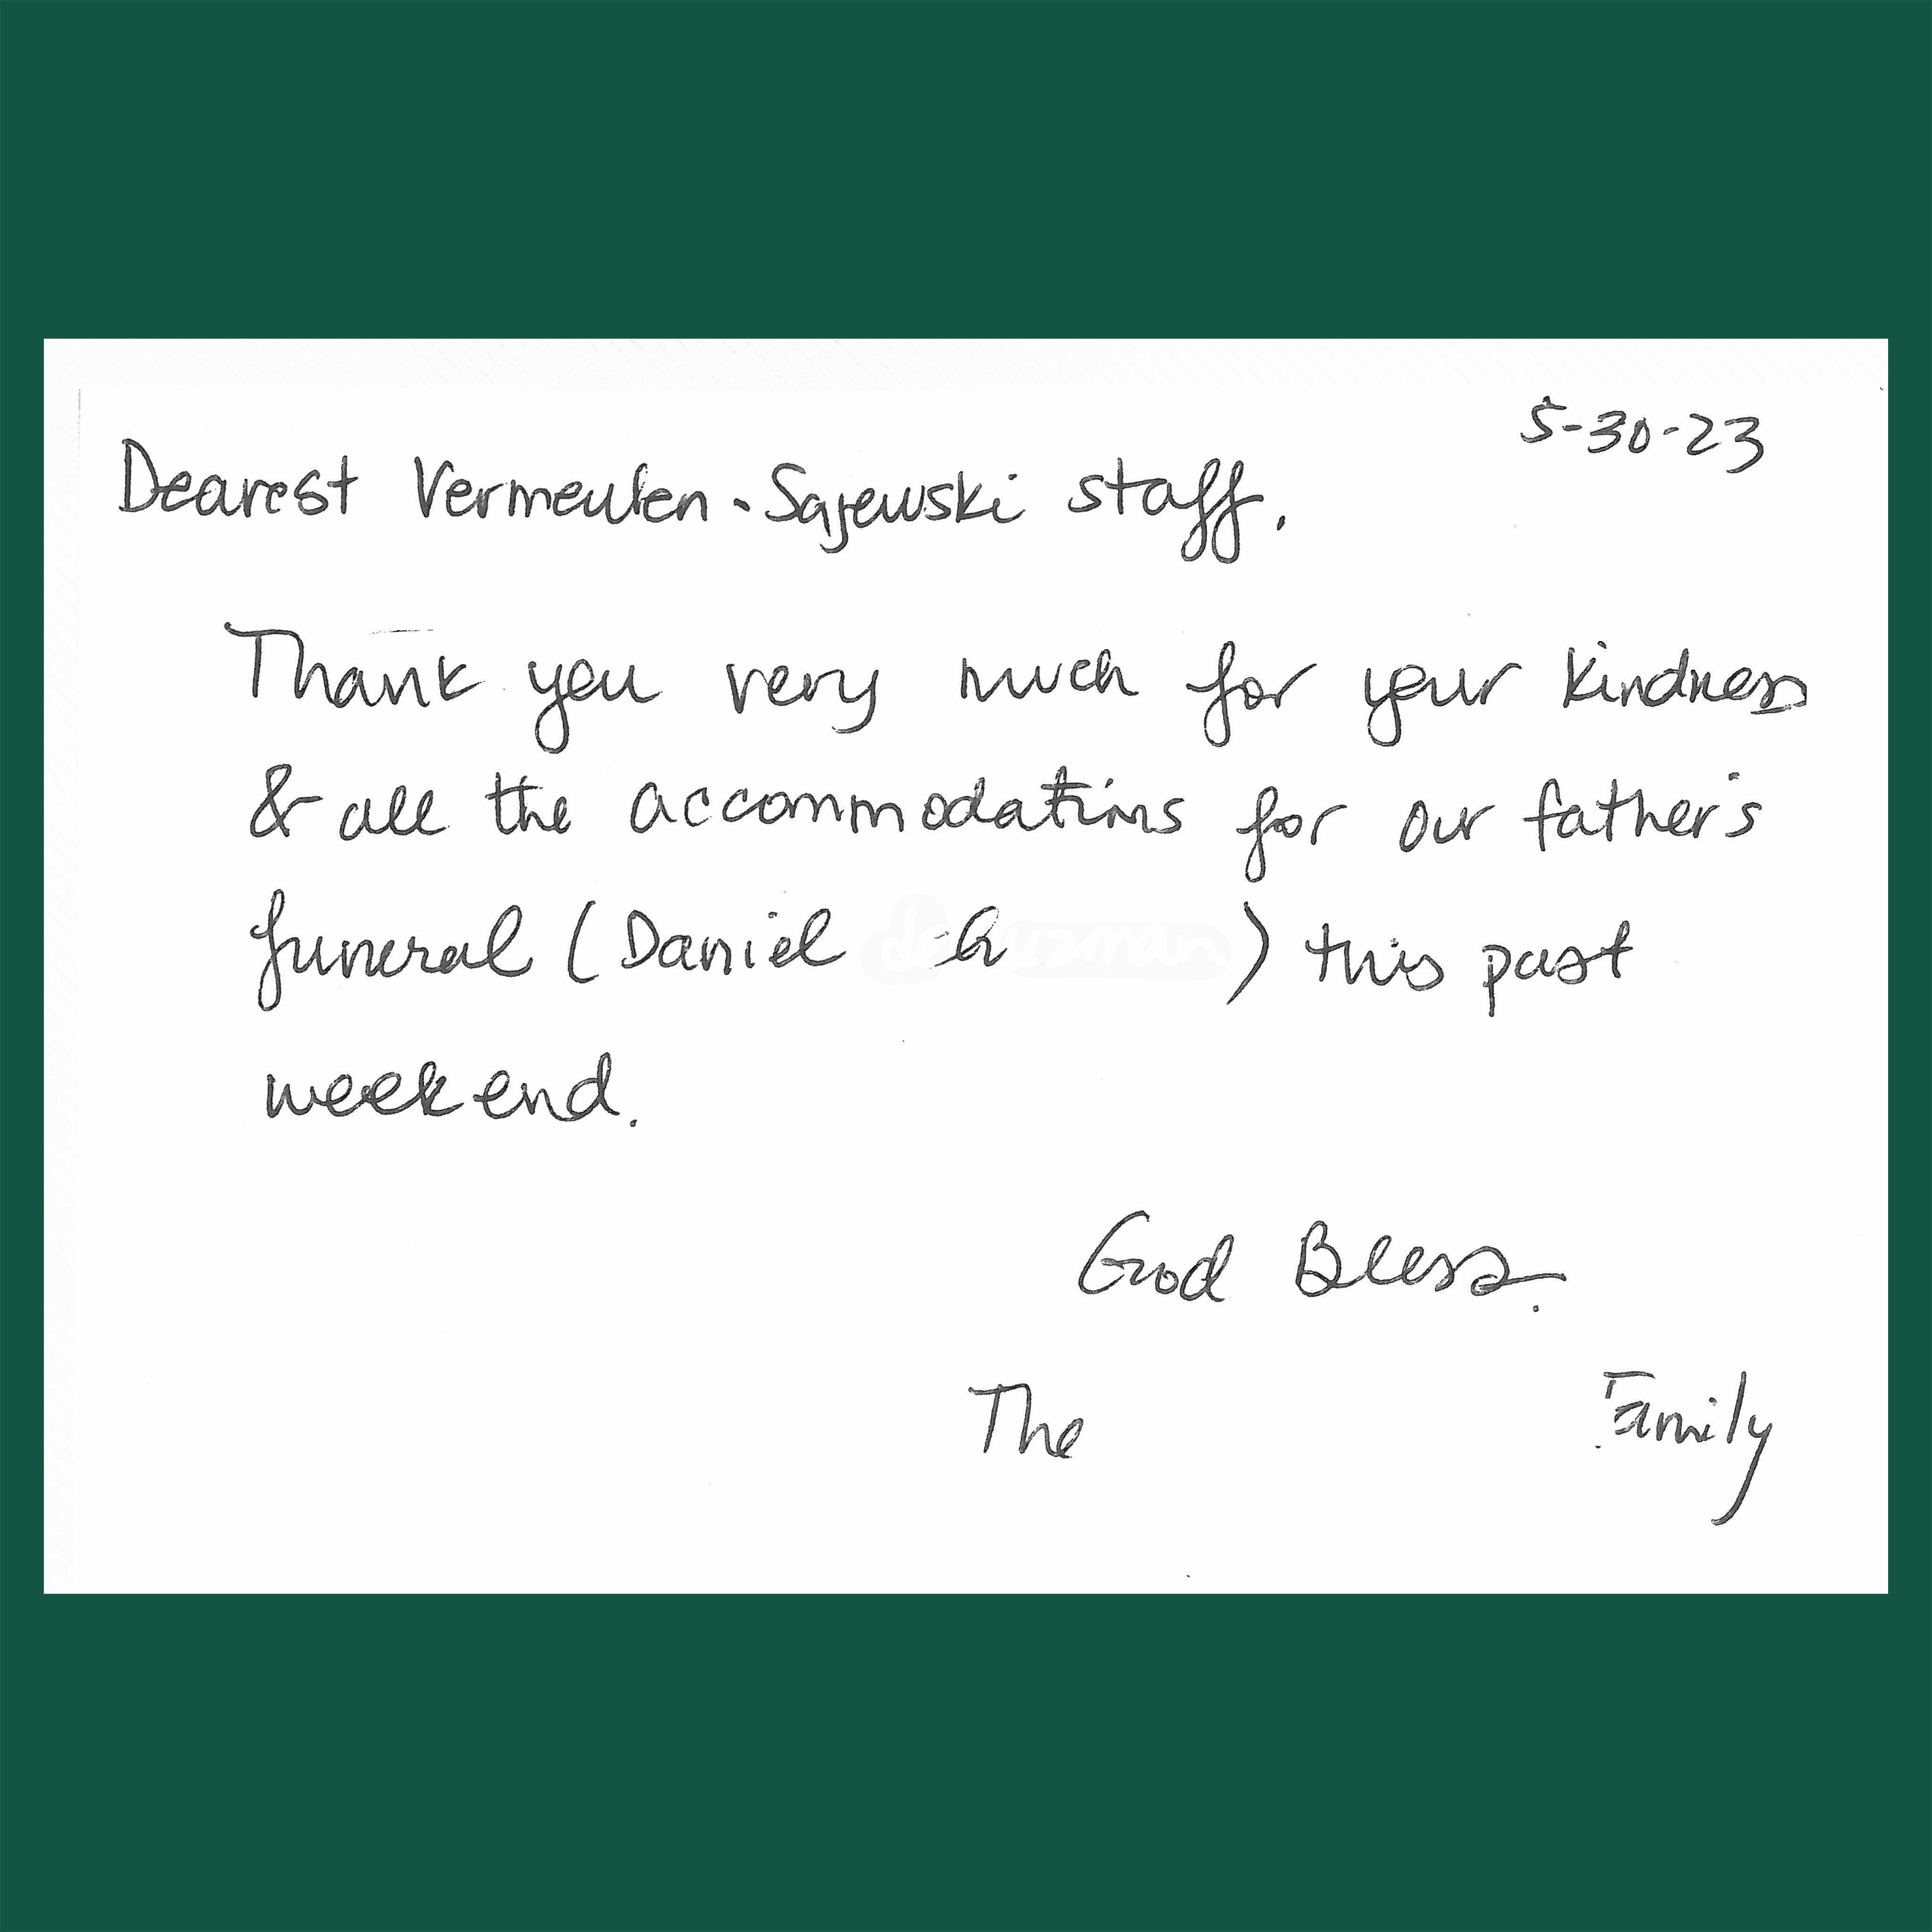 5-30-23
Dearest Vermeulen-Sajewski staff,
Thank you very much for your kindness
& all the accommodations for our father's
funeral (Daniel ) this past
weekend.
God Bless.
The Family